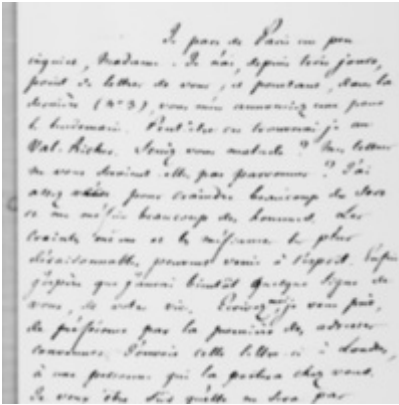 Je pars de Paris un peu
inquiet, Madame. Je n'ai, depuis trois jours,
point de lettre de vous, et pourtant, dans la
dernière (n° 3), vous m'en annonciez une pour
le lendemain. Peut-être en trouverai-je au
Val-Richer. Seriez vous malade ? Mes lettres
ne vous seraient-elles pas parvenues ? J'ai
assez pour craindre beaucoup du sort
et me méfier beaucoup des hommes. Les
craintes même et la méfiance les plus
déraisonnables peuvent venir à l'esprit. Enfin
j'espère que j'aurai bientôt quelque signe de
vous, de votre vie. Ecrivez-je vous prie,
de préférence par la première des adresses
convenues. J'envoie cette lettre ci à Londres,
à une personne qui la portera chez vous.
Je veux être sûr qu'elle ne sera pas